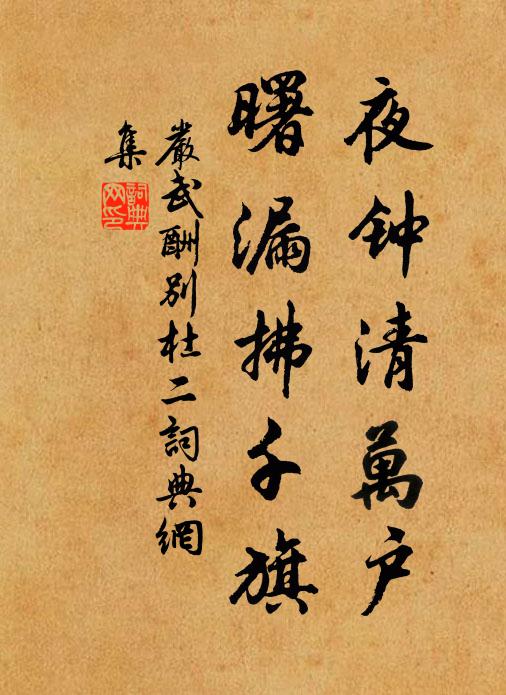 夜钟清萬户
曙漏拂千旗
嚴武酬别杜二詞典網
集
詞典网印